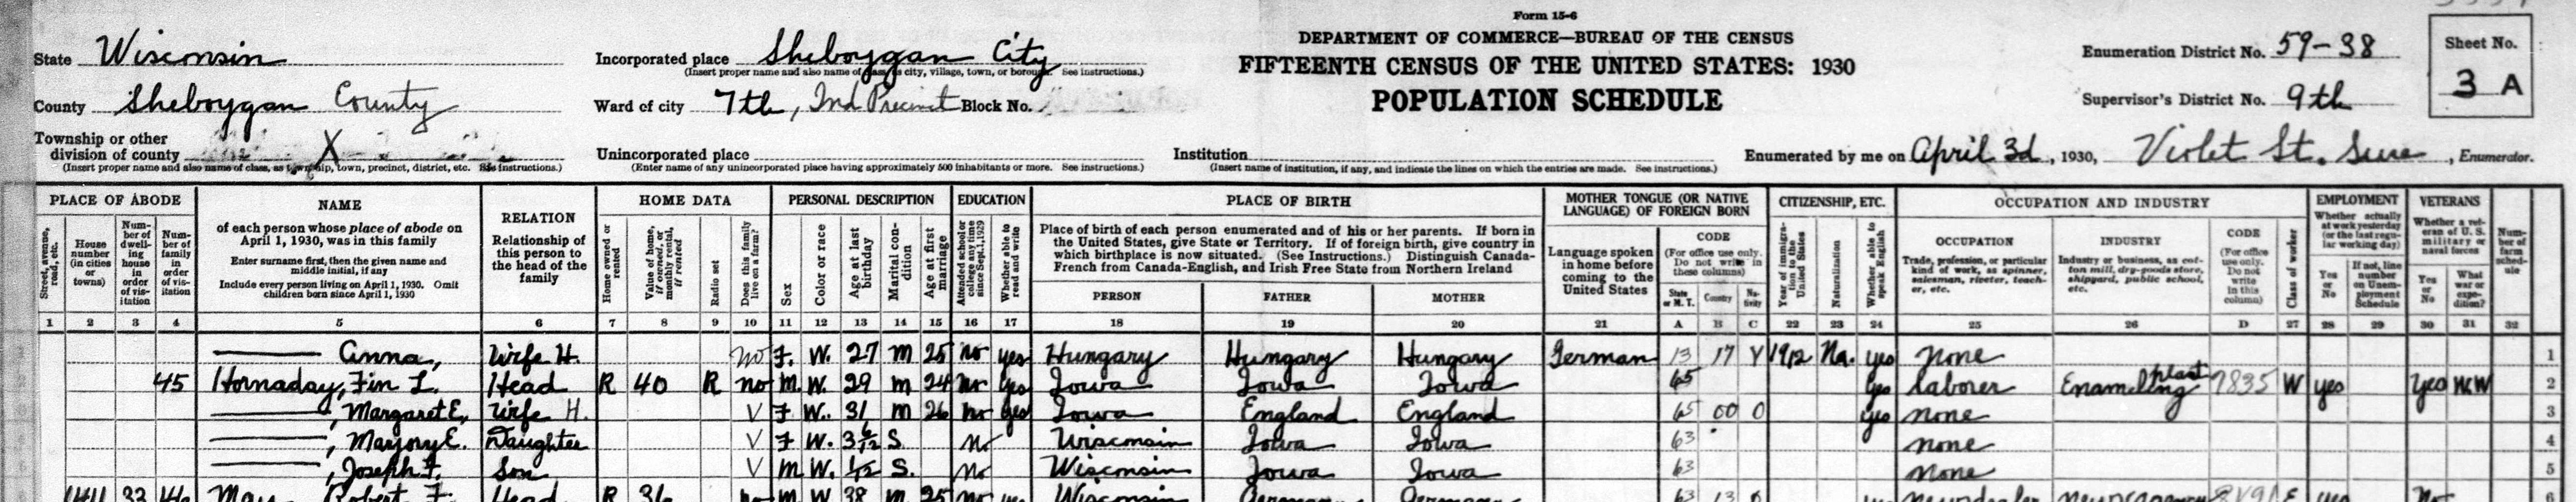 Form 15-6
DEPARTMENT OF COMMERCE—BUREAU OF THE CENSUS
FIFTEENTH CENSUS OF THE UNITED STATES: 1930
POPULATION SCHEDULE
State Wisconsin
County Sheboygan County
Township or other division of county X
(Insert proper name and also name of class, as township, town, precinct, district, etc. See instructions.)
Incorporated place Sheboygan City
(Insert proper name and also name of class, as city, village, town, or borough. See instructions.)
Ward of city 7th, 2nd Precinct Block No.
Unincorporated place
(Enter name of any unincorporated place having approximately 500 inhabitants or more. See instructions.)
Institution
(Insert name of institution, if any, and indicate the lines on which the entries are made. See instructions.)
Enumeration District No. 59-38
Supervisor's District No. 9th
Sheet No. 3 A
Enumerated by me on April 3d, 1930, Violet St. , Enumerator.
PLACE OF ABODE
Street, avenue, road, etc.
House number (in cities or towns)
Number of dwelling house in order of visitation
Number of family in order of visitation
NAME
of each person whose place of abode on April 1, 1930, was in this family
Enter surname first, then the given name and middle initial, if any
Include every person living on April 1, 1930. Omit children born since April 1, 1930
RELATION
Relationship of this person to the head of the family
HOME DATA
Home owned or rented
Value of home, if owned, or monthly rental, if rented
Radio set
Does this family live on a farm?
PERSONAL DESCRIPTION
Sex
Color or race
Age at last birthday
Marital condition
Age at first marriage
EDUCATION
Attended school or college any time since Sept. 1, 1929
Whether able to read and write
PLACE OF BIRTH
Place of birth of each person enumerated and of his or her parents. If born in the United States, give State or Territory. If of foreign birth, give country in which birthplace is now situated. (See Instructions.) Distinguish Canada-French from Canada-English, and Irish Free State from Northern Ireland
PERSON FATHER MOTHER
MOTHER TONGUE (OR NATIVE LANGUAGE) OF FOREIGN BORN
Language spoken in home before coming to the United States
CODE
(For office use only. Do not write in these columns)
State or M. T. Country Nativity
CITIZENSHIP, ETC.
Year of immigration to the United States
Naturalization
Whether able to speak English
OCCUPATION AND INDUSTRY
OCCUPATION
Trade, profession, or particular kind of work, as spinner, salesman, riveter, teacher, etc.
INDUSTRY
Industry or business, as cotton mill, dry-goods store, shipyard, public school, etc.
CODE
(For office use only. Do not write in this column)
Class of worker
EMPLOYMENT
Whether actually at work yesterday (or the last regular working day)
Yes or No
If not, line number on Unemployment Schedule
VETERANS
Whether a veteran of U.S. military or naval forces
Yes or No
What war or expedition?
Number of farm schedule
1 2 3 4 5 6 7 8 9 10 11 12 13 14 15 16 17 18 19 20 21 A B C 22 23 24 25 26 D 27 28 29 30 31 32
—— Anna, Wife H. No F. W. 27 m 25 no yes Hungary Hungary Hungary German 13 17 V 1912 Na. yes none 1
45 Hornaday, Fin L. Head R 40 R no M. W. 29 m 24 no yes Iowa Iowa Iowa 65 yes laborer Enameling plant 7835 W yes yes WW 2
——, Margaret E, Wife H. V F W. 31 m 26 no yes Iowa England England 65 00 0 yes none 3
——, Marjory E. Daughter V F W. 3 6/12 S. no Wisconsin Iowa Iowa 63 none 4
——, Joseph F. Son V M W. 1/12 S. no Wisconsin Iowa Iowa 63 none 5
1411 33 46 Robert F. Head R no M W 38 m 25 no yes Wisconsin Germany Germany 63 13 yes newsdealer E yes No 6